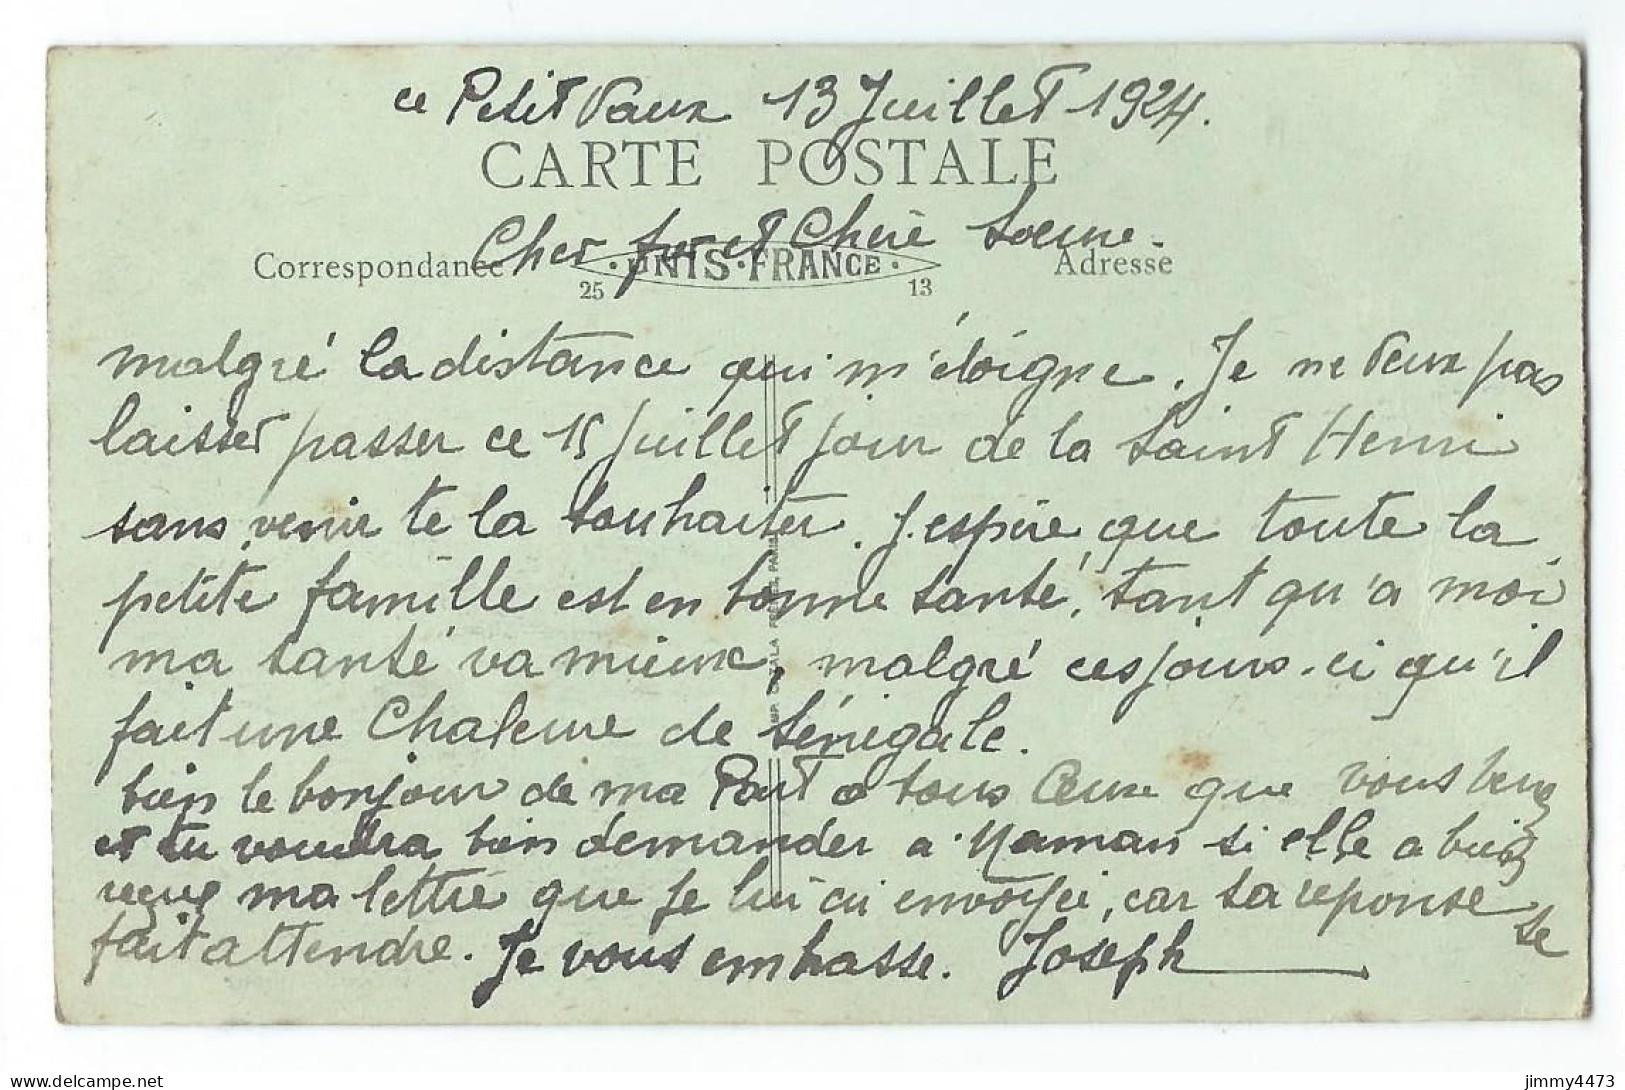 ce Petit Vaux 13 Juillet 1924.
CARTE POSTALE
Cher frr et Chère Soeure.
Correspondance UNIS-FRANCE Adresse
25 13
malgré la distance qui m'éloigne. Je ne veux pas
laisser passer ce 15 juillet jour de la Saint Henri
sans venir te la souhaiter. J'espère que toute la
petite famille est en bonne santé, tant qu'a moi
ma santé va mieux, malgré ces jours-ci qu'il
fait une Chaleure de Sénégale.
bien le bonjour de ma Part a tous Ceux que vous
et tu voudra bien demander a Maman si elle a bien
reçue ma lettre que je lui ai envoyei, car sa reponse se
fait attendre. Je vous embrasse. Joseph
jimmy4473 - delcampe.net